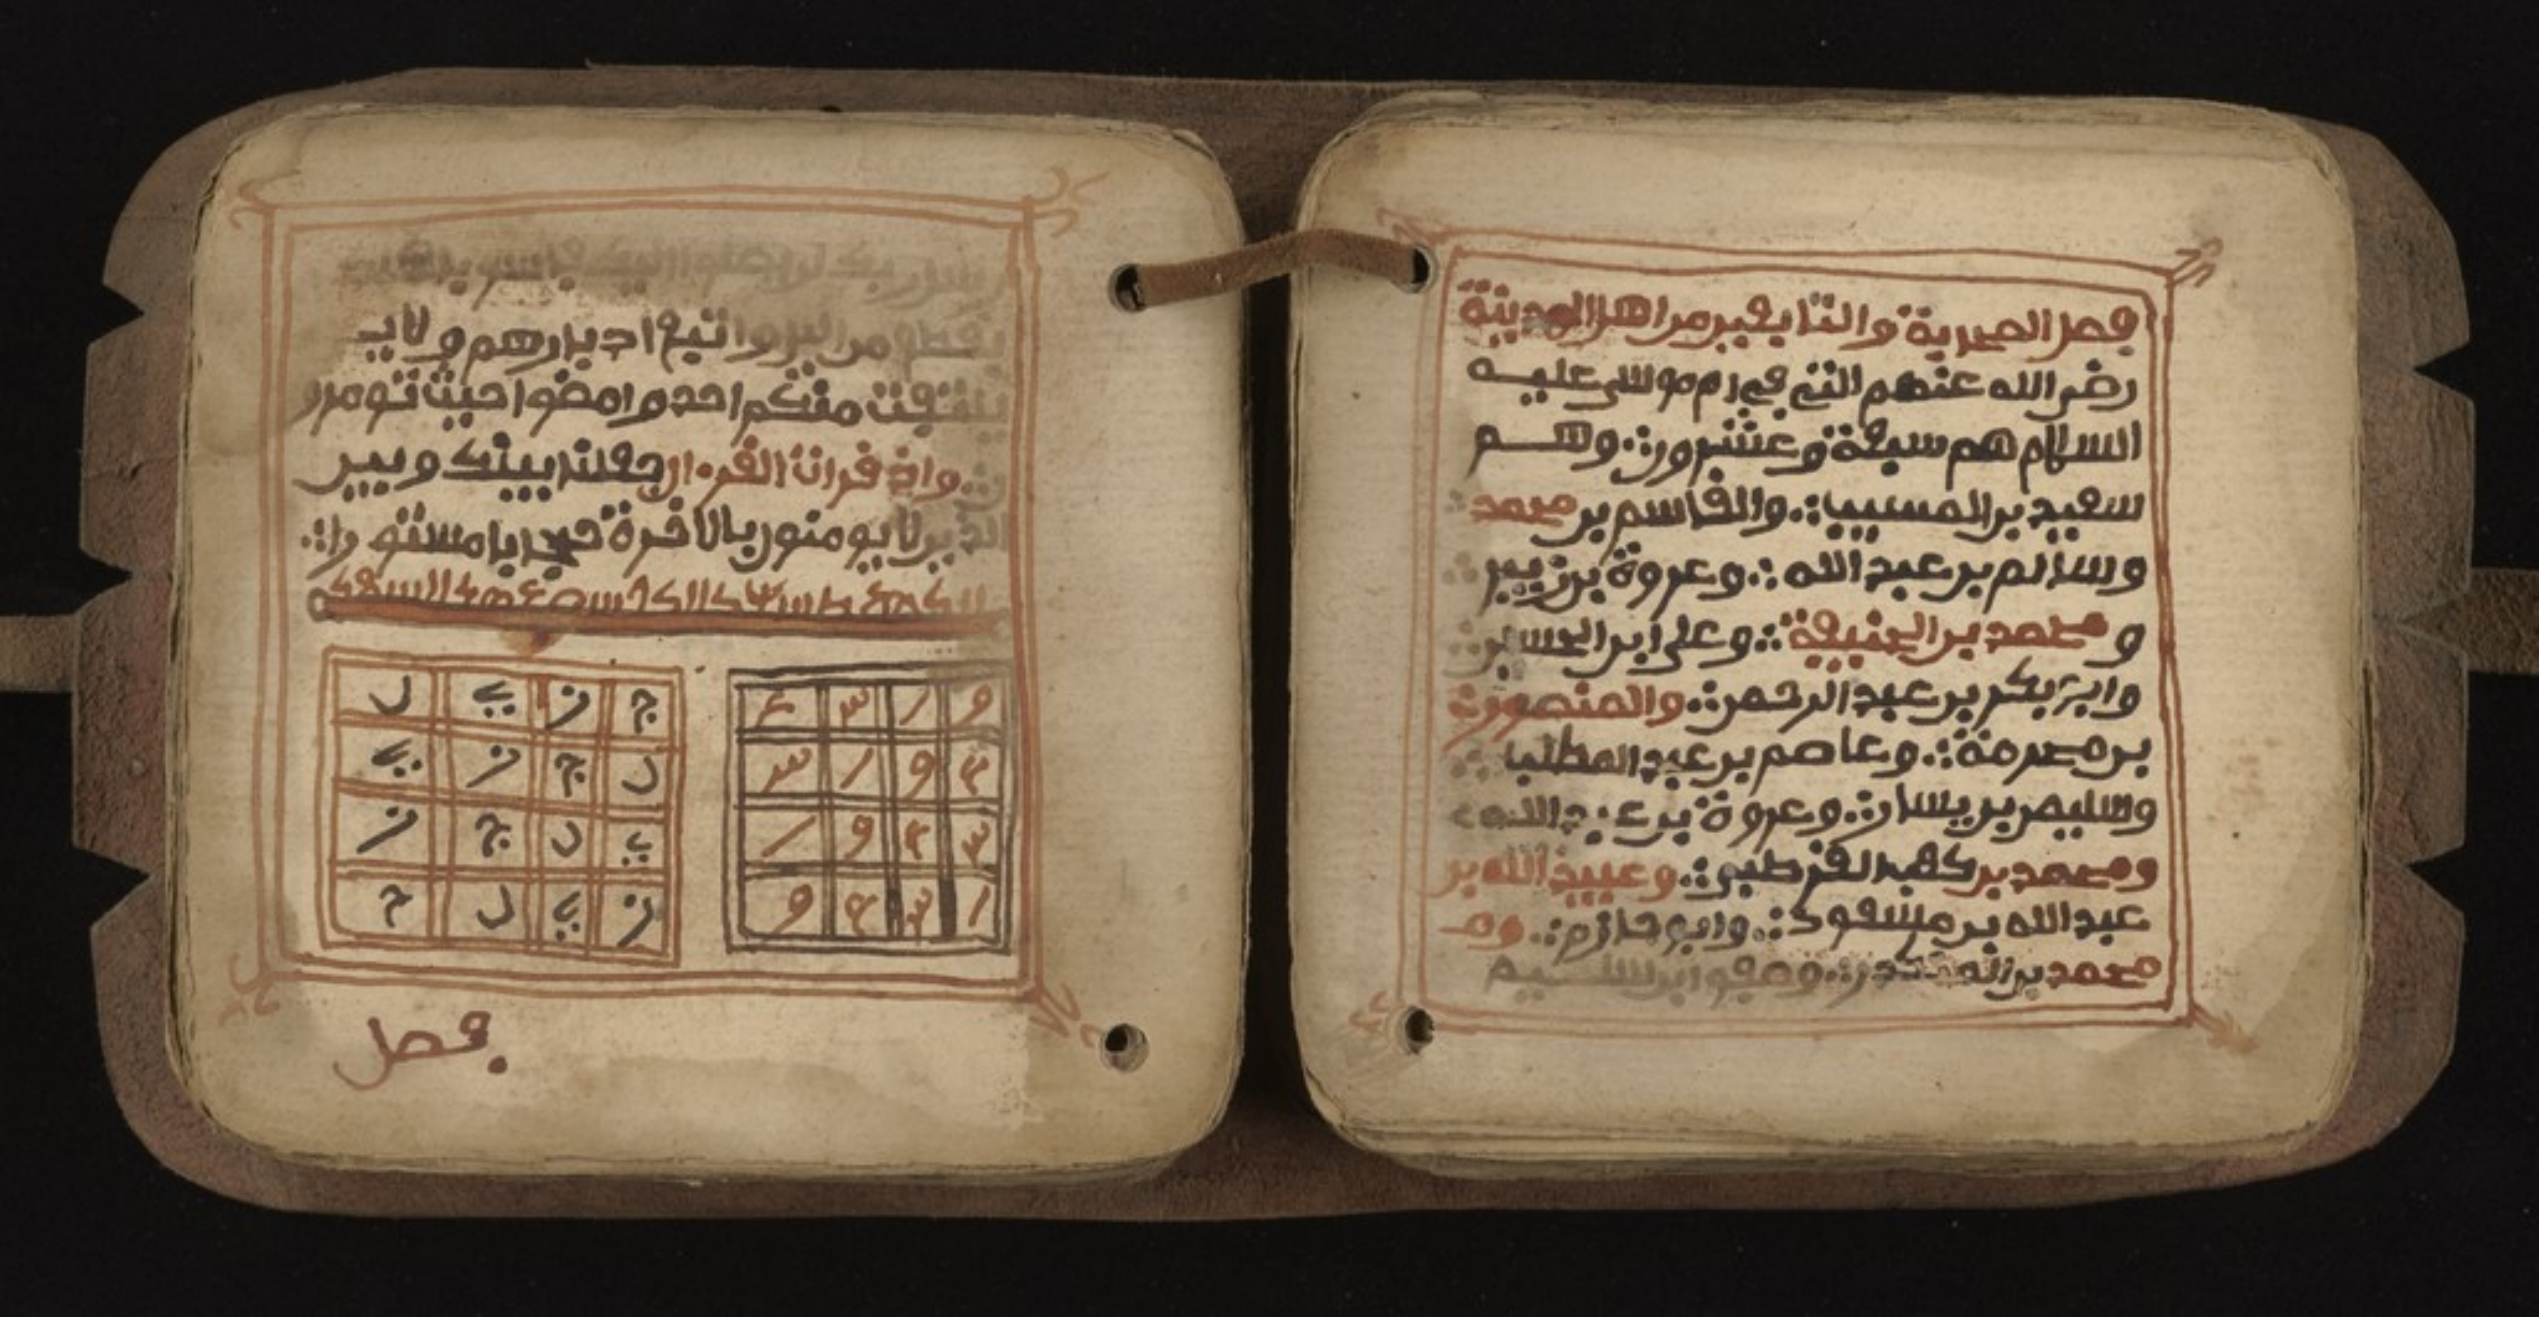 فصل الصحرية والتابعين من اهل المدينة
رضي الله عنهم التي في زم موسى عليه
السلام هم سبعة وعشرون وهم
سعيد بن المسيب والقاسم بن محمد
وسالم بن عبد الله وعروة بن زبير
و محمد بن الحنيفة وعلى ابن الحسين
وابى بكر بن عبد الرحمن والمنصور
بن مصرمة وعاصم بن عبد المطلب
وسليمن بن يسار وعروة بن عبد الله
ومحمد بن كعبد القرطبي وعبيد الله بن
عبد الله بن مسعود وابو حازم وم
محمد بن المنكدر وصفوا ابن سليم
رسل ربك لن يصلوا اليك فاسر باهلك
بقطع من اليل واتبع ادبارهم ولا ي
يلتفت منكم احد وامضوا حيث تومرو
ن واذا قرات القرءان جعلنا بينك وبين
الذين لا يومنون بالاخرة حجابا مستورا
9 1 3 4
4 9 1 3
3 4 9 1
1 3 4 9
ج ز ي ل
ل ج ز ي
ي ل ج ز
ز ي ل ج
فصل